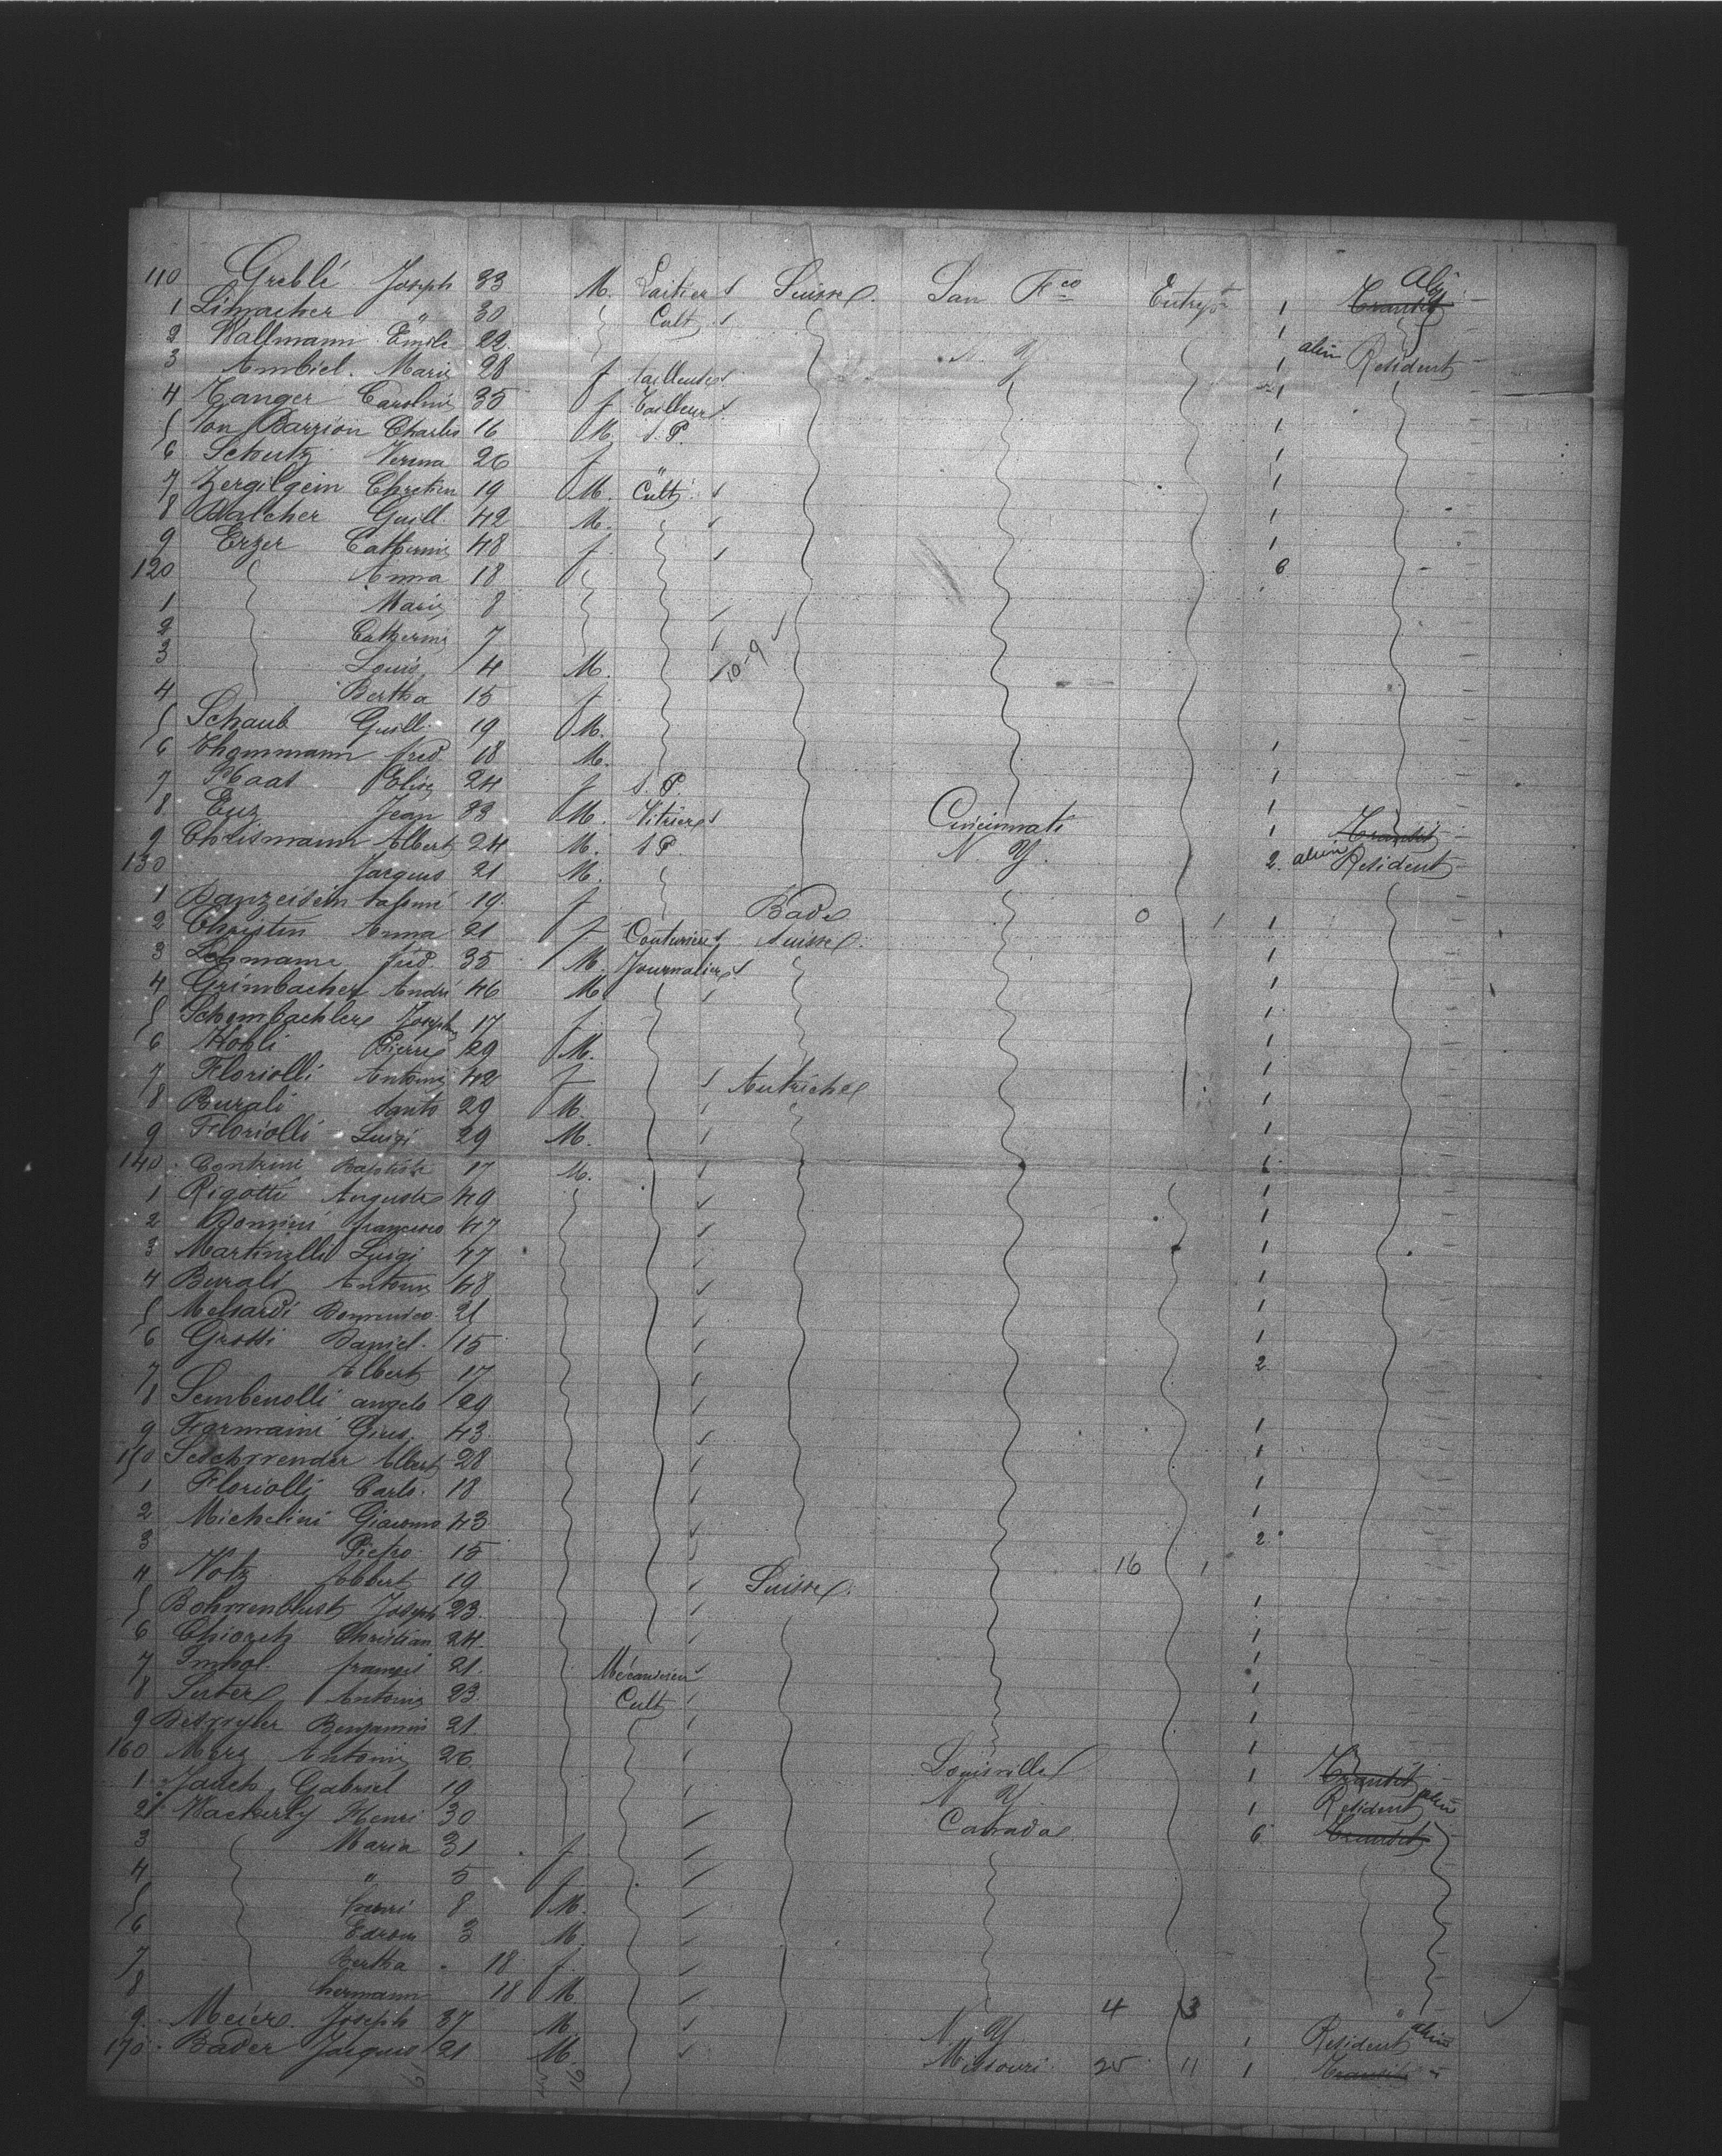 110 Greblé Joseph 33 M. Laitier Suisse San Fco Entrepr 1 Transit Alien
1 Limacher " 30 Cult 1
2 Wallmann Emile 22 N. Y. 1 alien Resident
3 Ambiel. Marie 28 f tailleuse 1
4 Tanger Caroline 35 f. Tailleur 1
5 Von Barrion Charles 16 M. S. P. 1
6 Schutz Verena 26 f " 1
7 Zergilgein Chretien 19 M. Cult 1
8 Balcher Guill. 42 M. 1
9 Erzer Catherine 48 f. 6
120 Anna 18
1 Marie 8
2 Catherine 7
3 Louis 4 M. 10-9
4 Bertha 15 f
5 Schaub Guill. 19 M. 1
6 Thommann fred 18 M. 1
7 Haas Elise 24 f S. P. 1
8 Euz Jean 33 M. Vitrier Cincinnati 1 Transit
9 Chrismann Albert 24 M. S P. N. Y. 2 alien Resident
130 Jacques 21 M.
1 Danzeisein 19 f Bade 0 1 1
2 Christen Anna 21 f Couturière Suisse 1
3 Lehmann fréd. 35 M. Journalier 1
4 Grimbacher André 46 M. 1
5 Schembachler Joseph 17 f 1
6 Kohli Pierre 29 M. 1
7 Floriolli Antoine 42 f Autriche 1
8 Burali Santo 29 M. 1
9 Floriolli Luigi 29 M. 1
140 Contrini Baptiste 17 M. 1
1 Rigotti Auguste 40 1
2 Bonnini francisco 47 1
3 Martinelli Luigi 47 1
4 Burali Antoine 48 1
5 Melsardi Domenico 21 1
6 Grotti Daniel. 15 2
7 Albert 17
8 Sembenolli angelo 29 1
9 Formaini Gius. 43 1
150 Albert 28 1
1 Floriolli Carlo. 18 1
2 Michelini Giacomo 43 2
3 Pietro 15 16 1
4 Notz Albert 19 Suisse. 1
5 Bohnenblust Joseph 23. 1
6 Christian 24 1
7 Imhof. françois 21. Mécanicien 1
8 Suter Antoine 23 Cult 1
9 Benjamin 21 1
160 Merz Antoine 26 Louisville 1 Transit
1 Jauch Gabriel 19 N. Y. 1 Resident alien
2 Wackerly Henri 30 Canada 6 Transit
3 Maria 31 f
4 " 5 f
5 henri 8 M.
6 3 M.
7 Bertha 18 f.
8 hermann 18 M. 4 3
9 Meier Joseph 37 M. N. Y. 1 Resident alien
170 Bader Jacques 21 M. Missouri 25 11 1 Transit